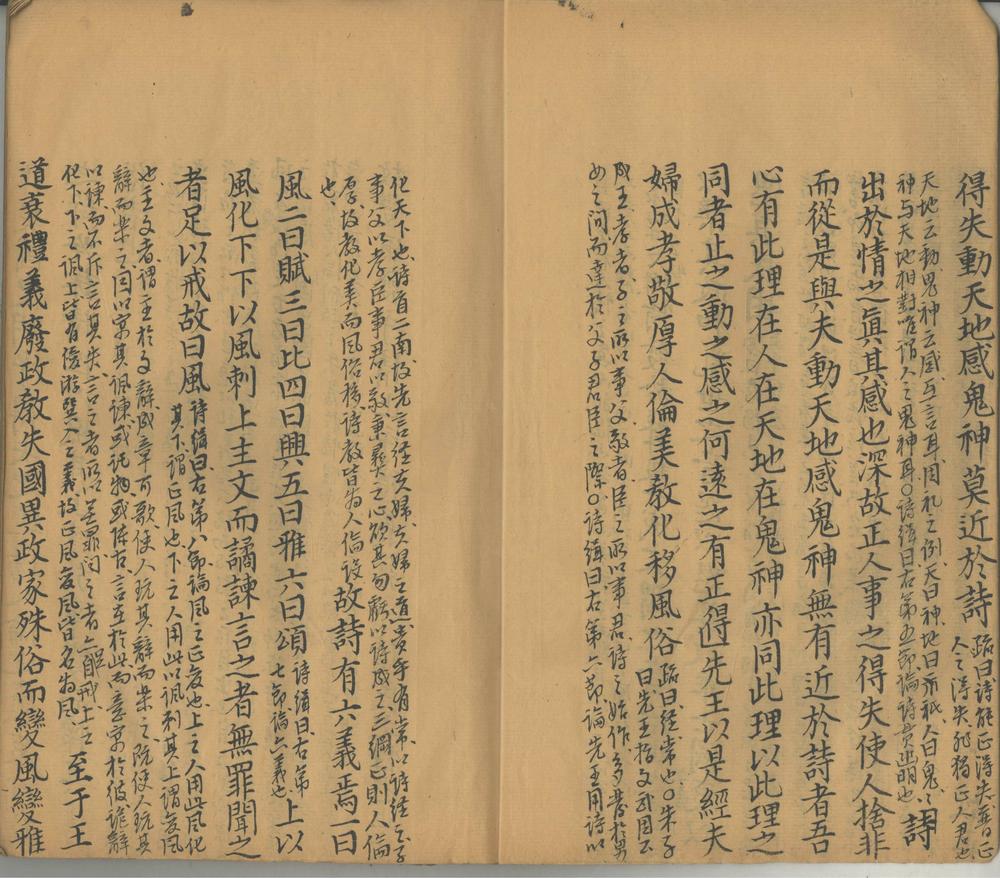 得失動天地感鬼神莫近於詩疏曰詩能正得失普正
人之得失非獨正人君也
天地云動鬼神云感互言耳周礼之例天曰神地曰示祇人曰鬼鬼
神与天地相對唯謂人之鬼神耳○詩緝曰右第五節論詩貴也詩
出於情之真其感也深故正人事之得失使人捨非
而從是與夫動天地感鬼神無有近於詩者吾
心有此理在人在天地在鬼神亦同此理以此理之
同者止之動之感之何遠之有正得先王以是經夫
婦成孝敬厚人倫美教化移風俗疏曰經常也○朱子
曰先王指文武周公
成王孝者子之所以事父敬者臣之所以事君詩之始作多發於男
女之間而達於父子君臣之際○詩緝曰右第六節論先王用詩以
化天下也詩首二南故先言經夫婦夫婦之道貴乎有常以詩經之子
事父以孝臣事君以敬秉彝之心欲其勿虧以詩成之三綱正則人倫
厚故教化美而風俗移詩教皆為人倫設
也故詩有六義焉一曰
風二曰賦三曰比四曰興五曰雅六曰頌詩緝曰右第
七節論六義也上以
風化下下以風刺上主文而譎諫言之者無罪聞之
者足以戒故曰風詩緝曰右第八節論風之正變也上之人用此風化
其下謂正風也下之人用此以諷刺其上謂變風
也主文者謂主於文辭成章可歌使人玩其辭而樂之既使人玩其
辭而樂之因以寓其諷諫或託物或陳古言在於此而意寓於彼詭辭
以諫而不斥言其失言之者所以無罪聞之者亦戒上之
化下下之諷上皆有優游巽入之義故正風變風皆名為風至于王
道衰禮義廢政教失國異政家殊俗而變風變雅